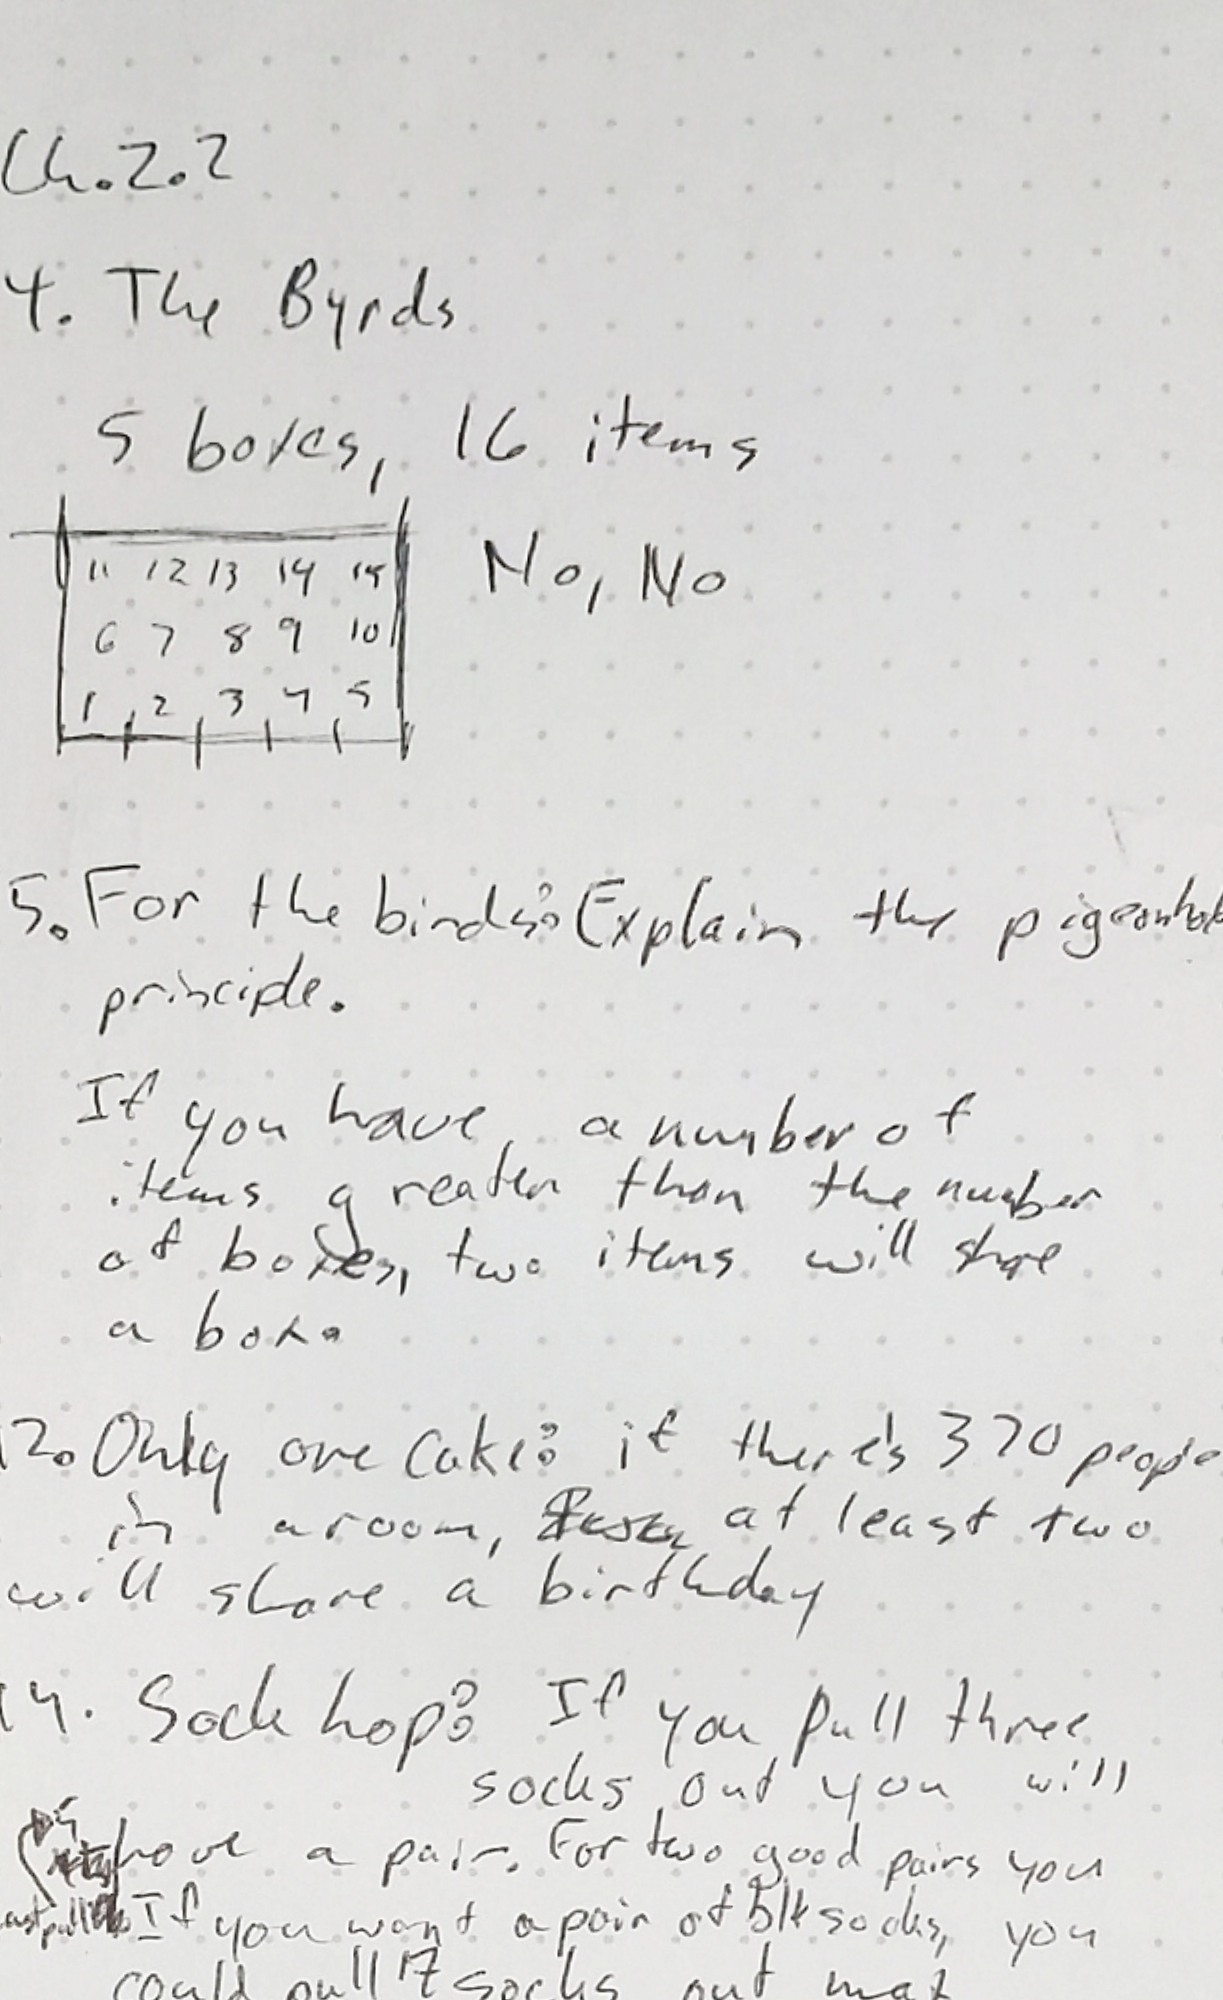 Ch. 2.2
4. The Byrds
5 boxes, 16 items
11 12 13 14 15
No, No
6 7 8 9 10
1 2 3 4 5
5. For the birds: Explain the pigeonhole
principle.
If you have a number of
items greater than the number
of boxes, two items will share
a box.
12. Only one cake: if there's 370 people
in a room, at least two
will share a birthday
14. Sock hop: If you pull three
socks out you will
have a pair. For two good pairs you
If you want a pair of blk socks, you
could pull 17 socks out